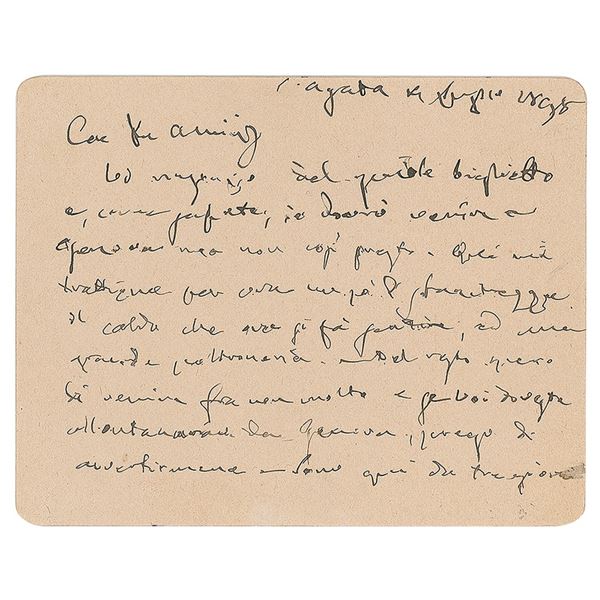 S. Agata 12 Luglio 1898
Car
Vi ringrazio del gentile biglietto
e, come sapete, io dovrò venire a
Genova ma non così presto. Quà mi
trattiene per ora un pò di stanchezza
il caldo che ora si fà sentire, ed una
grande poltroneria. Del resto spero
di venire fra non molto e se voi doveste
allontanarvi da Genova, prego di
avvertirmene. Sono quì da tre giorni